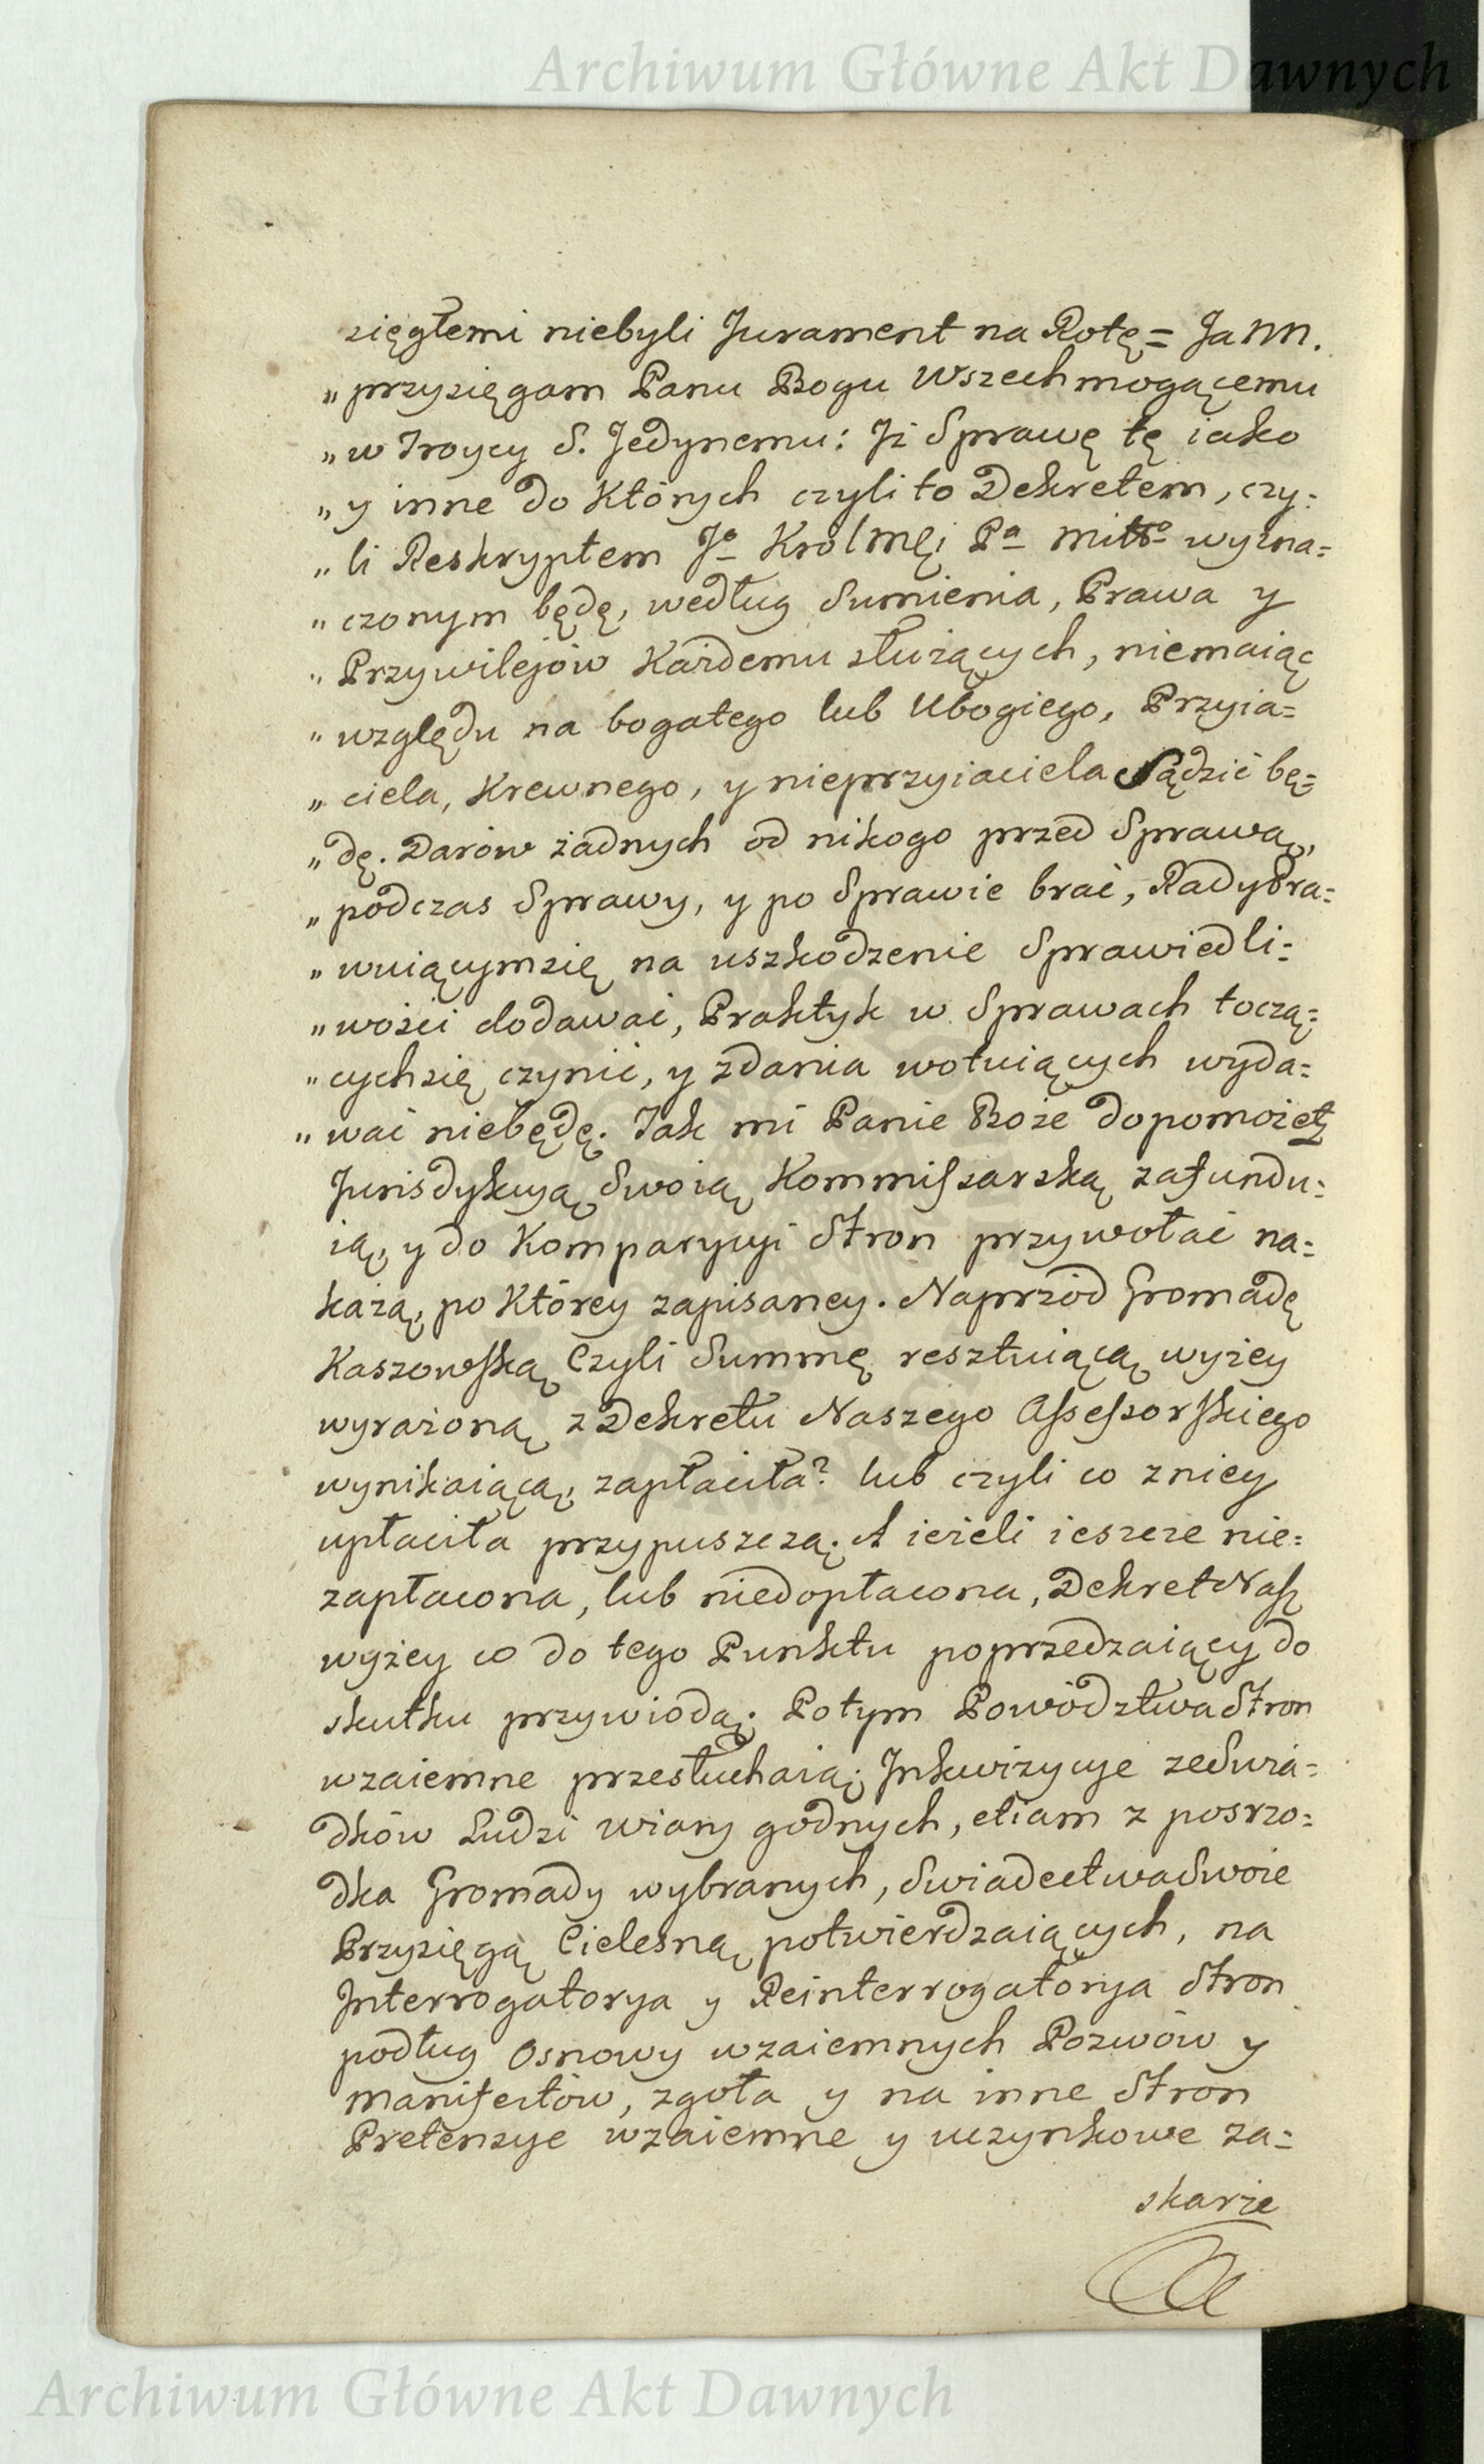 Archiwum Główne Akt Dawnych
sięgłemi niebyli Jurament na Rotę = Ja NN.
„ przysięgam Panu Bogu Wszechmogącemu
„ w Troycy S. Jedynemu: Jż Sprawę tę iako
„ y inne do Których czyli to Dekretem, czy:
„ li Reskryptem Jo Krol Mci Pa Miłło wyzna=
„ czonym będę, według Sumienia, Prawa y
„ Przywilejów Każdemu służących, niemaiąc
„ względu na bogatego lub Ubogiego, Przyia=
„ ciela, Krewnego, y nieprzyiaciela Sądzić bę=
„ dę. Darów żadnych od nikogo przed Sprawą,
„ podczas Sprawy, y po Sprawie brać, Rady Pra:
„ wuiącymsię na uszkodzenie Sprawiedli:
„ wości dodawać, Praktyk w Sprawach toczą:
„ cychsię czynić, y zdania wotuiących wyda=
„ wać niebędę. Tak mi Panie Boże dopomoż etz
Jurisdykcyą Swoią Kommissarską zafundu:
ią, y do Komparycyi Stron przywołać na:
każą, po Którey zapisaney. Naprzód Gromadę
Kaszowską Czyli Summę resztuiącą wyżey
wyrażoną z Dekretu Naszego Assessorskiego
wynikaiącą, zapłaciła? lub czyli co zniey
upłaciła przypuszczą; A ieżeli ieszcze nie:
zapłacona, lub niedopłacona, Dekret Nasz
wyżey co do tego Punktu poprzedzaiący do
skutku przywiodą; Potym Powództwa Stron
wzaiemne przesłuchaią; Jnkwizycye ze Swia:
dków Ludzi wiary godnych, etiam z posrzo:
dka Gromady wybranych, Swiadectwa Swoie
Przysięgą Cielesną potwierdzaiących, na
Jnterrogatorya y Reinterrogatorya Stron
podług Osnowy wzaiemnych Pozwów y
Manifestów, zgoła y na inne Stron
Pretensye wzaiemne y uczynkowe za=
skarże
Archiwum Główne Akt Dawnych